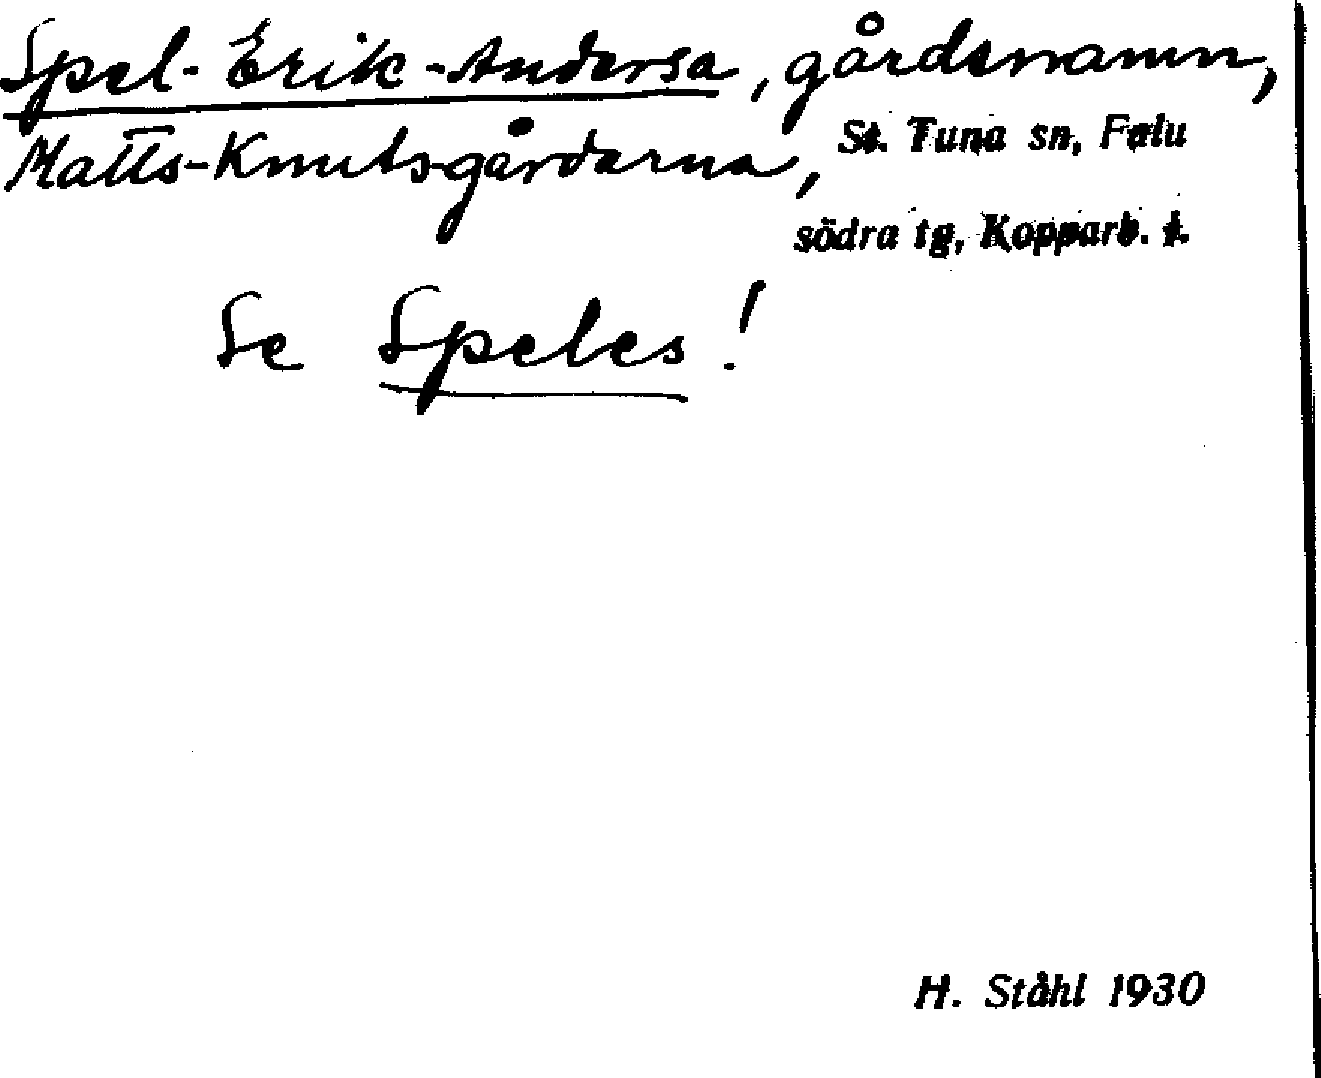 Spel-Erik-Andersa, gårdsnamn,
Matts-Knutsgårdarna, St. Tuna sn, Falu
södra tg, Kopparb. l.
Se Speles!
H. Ståhl 1930